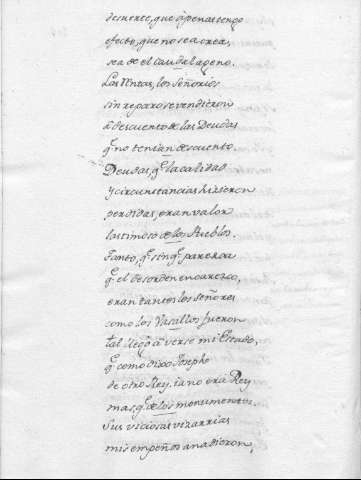 desuerte, que àpenas tengo
efecto, que no sea orea,
sea de el caudal ageno.
Las Ventas, los Señorios
sin reparo se vendieron
à descuento de las Deudas
q.e no tenian descuento.
Deudas, q.e la calidad
y circunstancias hizieron
perdidas, eran valor
lastimoso de los Pueblos.
Tanto, q.e sin q.e parezca
q.e el desorden encarezco,
eran tantos los señores
como los Vasallos fueron
tal llegò à verse mi Estado,
q.e como dixo Josepho
de otro Rey, ia no era Rey
mas, q.e de los monumentos.
Sus viciosas vizarrias
mis empeños anadieron,